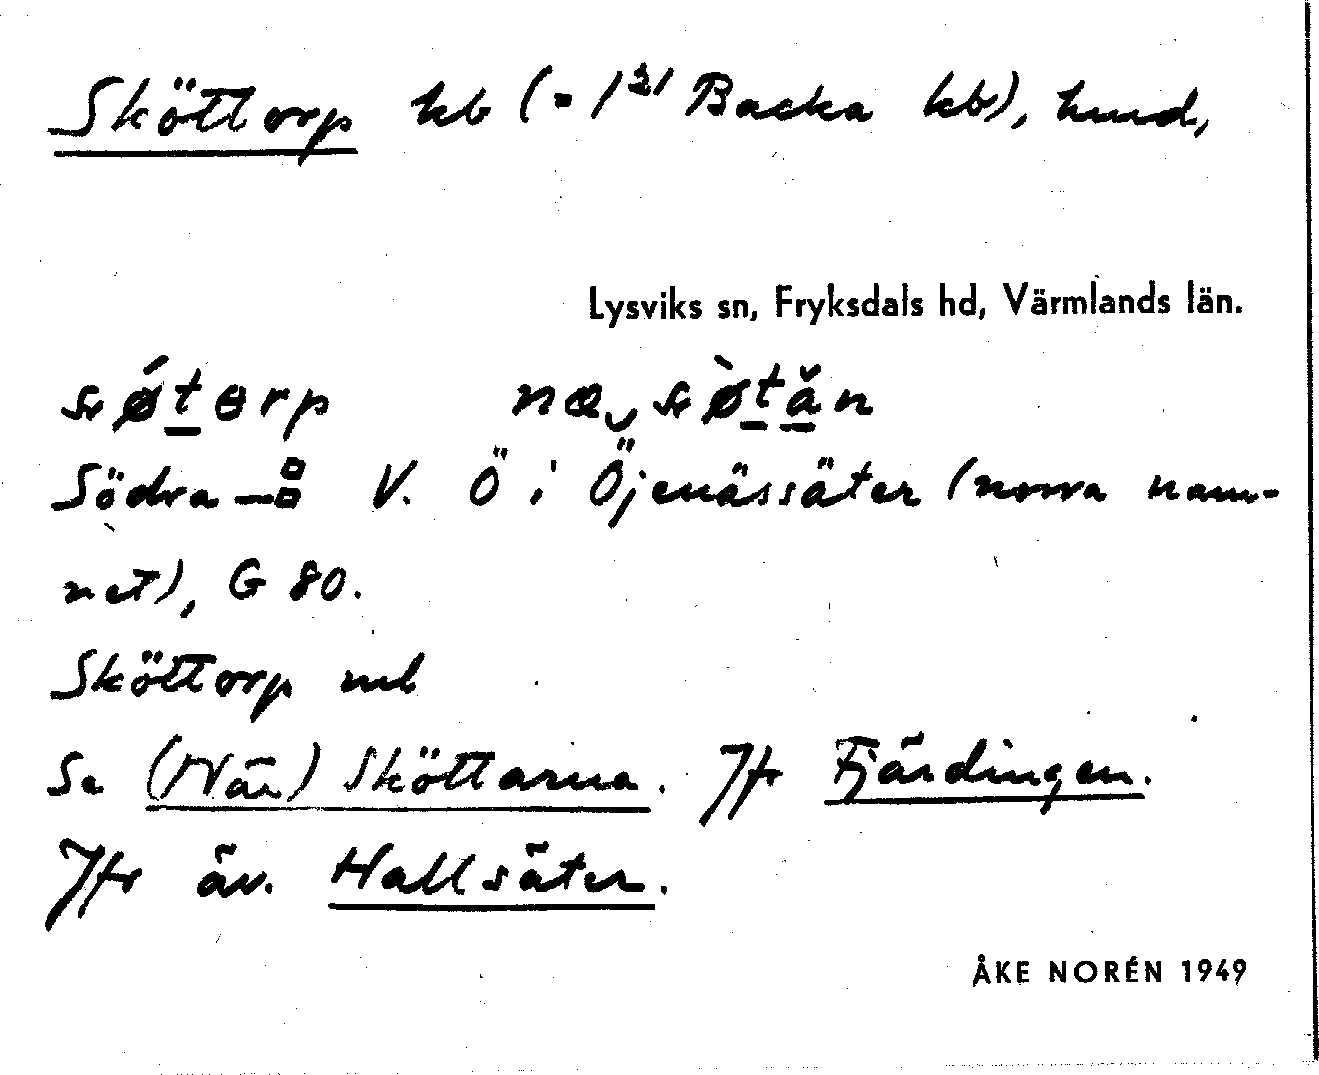 Sköttorp kb (= 1²¹ Backa kb), hmd,
Lysviks sn, Fryksdals hd, Värmlands län.
Södra V. Ö i Öjenässäter (norra nam-
net), G 80.
Sköttorp ml
Se (När) Sköttarna. Jfr Fjärdingen.
Jfr äv. Hallsäter.
ÅKE NORÉN 1949